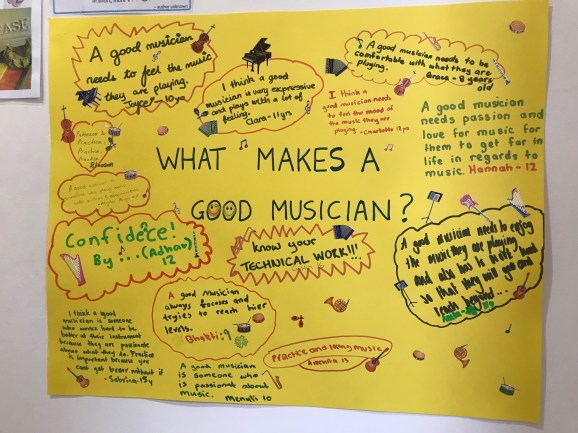 A good musician
needs to feel the music
they are playing.
Joyce - 10yo
I think a good
musician is very expressive
and plays with a lot of
feeling.
Clara - 11yrs
A good musician needs to be
comfortable with what they are
playing.
Grace - 8 years
old
I think a
good musician needs
to feel the mood of
the music they are
playing. - Charlotte 12yo
A good musician
needs passion and
love for music for
them to get far in
life in regards to
music. Hannah - 12
Practice,
Practice,
WHAT MAKES A
GOOD MUSICIAN?
Confidece!
By ... (Adhav)
12
Know your
TECHNICAL WORK!!!
A good musician needs to enjoy
the music they are playing
and also has to work hard
so that they will get good
A good Musician
always focuses and
tryies to reach hier
levels.
Bhakti: 9
I think a good
musician is someone
who works hard to be
better at their instrument
because they are passionate
about what they do. Practice
is important because you
cant get better without it
- Sabrina 13y
A good musician
is someone who
is passionate about
music. Menuli 10
Practice and liking music
13